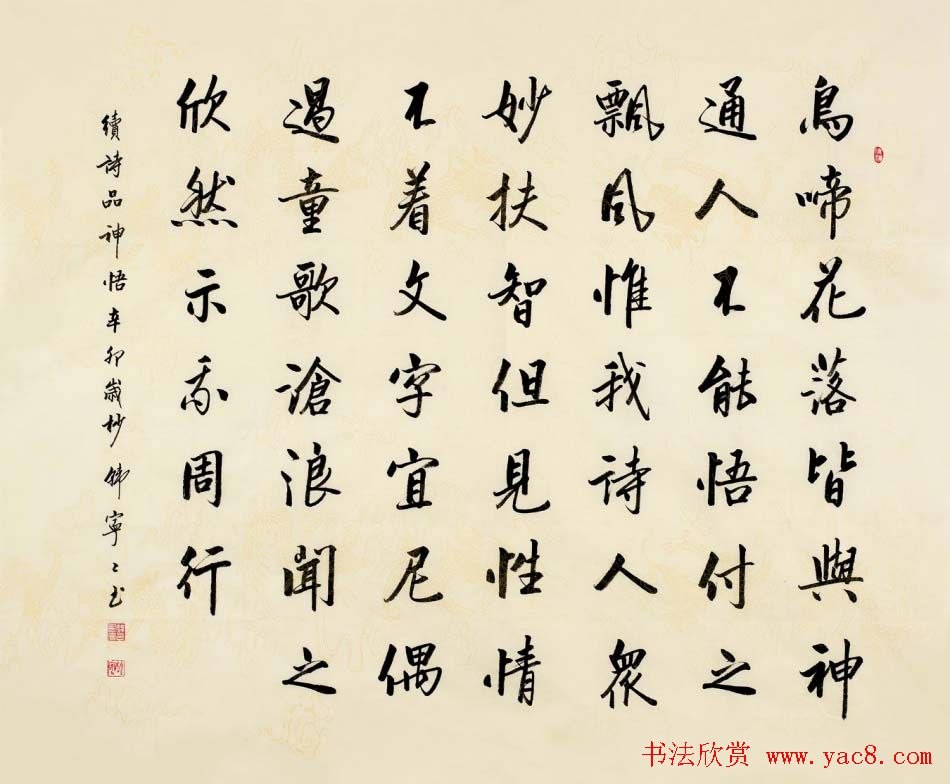 鳥啼花落皆與神
通人不能悟付之
飄風惟我詩人衆
妙扶智但見性情
不着文字宜尼偶
過童歌滄浪聞之
欣然示我周行
續詩品神悟辛卯歲杪韓寧〻书
书法欣赏 www.yac8.com